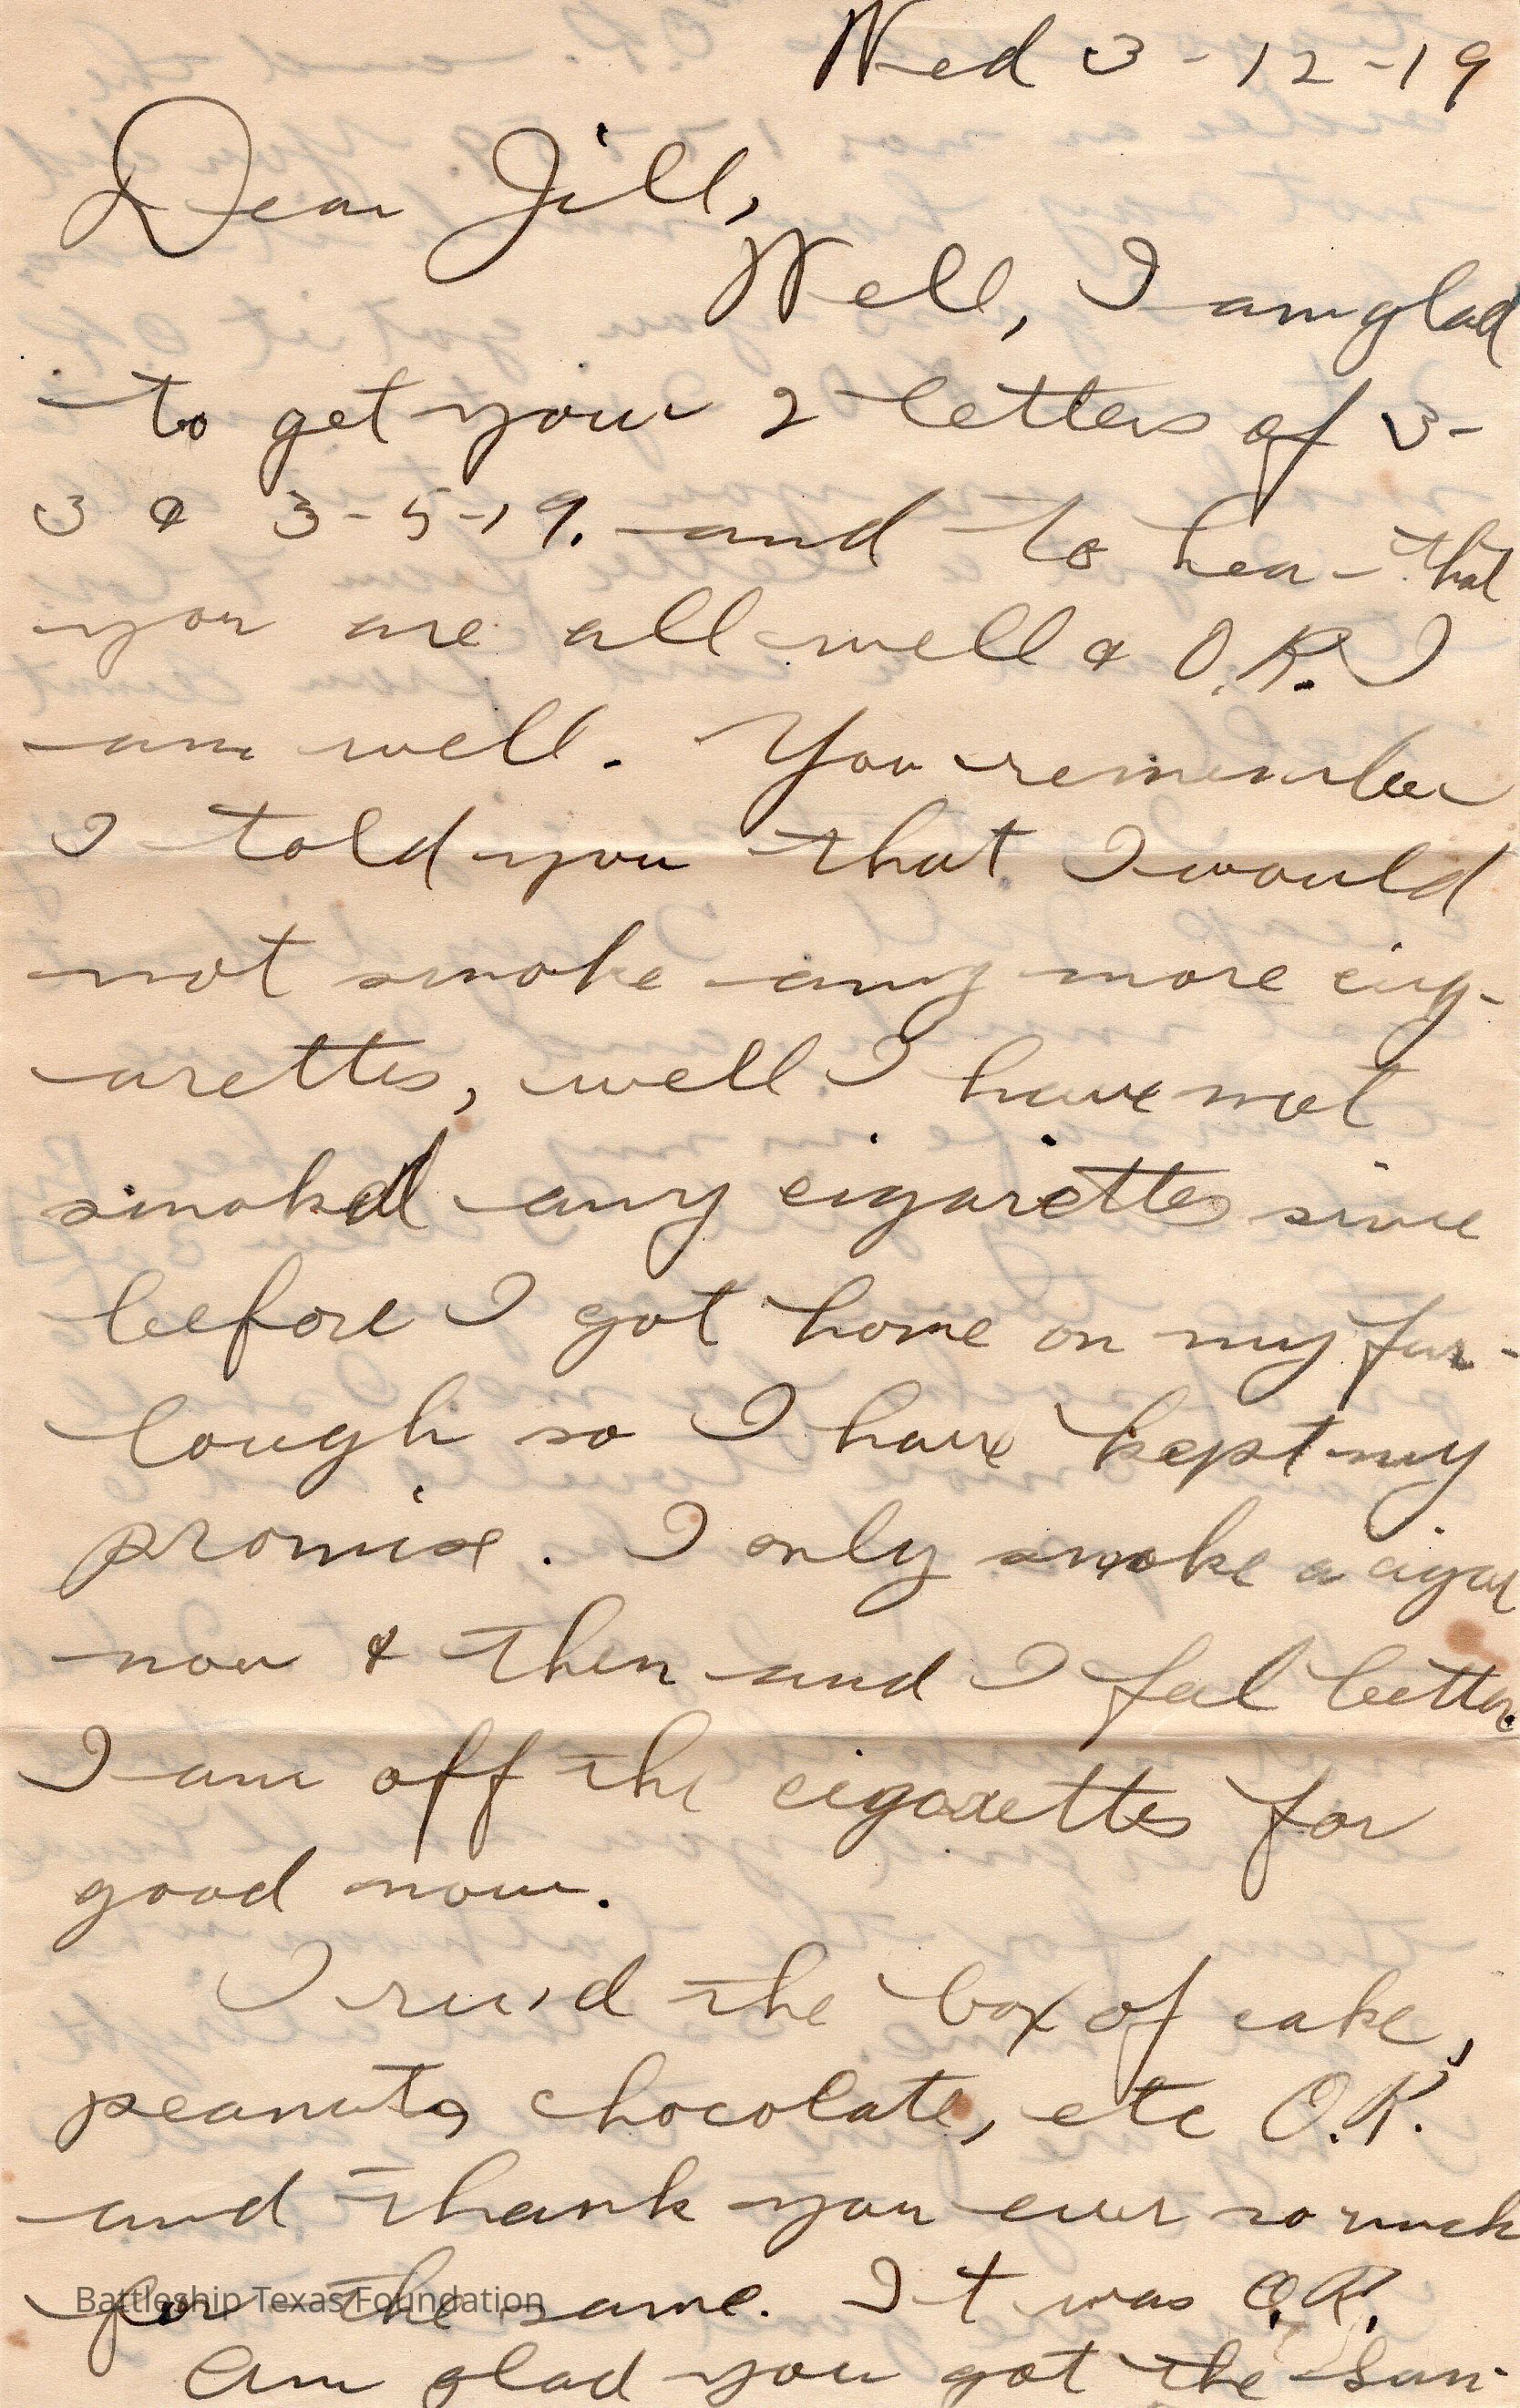 Wed 3-12-19
Dear Jill,
Well, I am glad
to get your 2 letters of 3-
3 & 3-5-19. and to hear that
you are all well & O.K. I
am well. You remember
I told you that I would
not smoke any more cig-
arettes, well I have not
smoked any cigarettes since
before I got home on my fur-
lough so I have kept my
promise. I only smoke a cigar
now & then and I feel better.
I am off the cigarettes for
good now.
I rec'd the box of cake,
peanuts, chocolate, etc O.K.
and thank you ever so much
for the same. It was O.K.
Battleship Texas Foundation
Am glad you got the Sun-